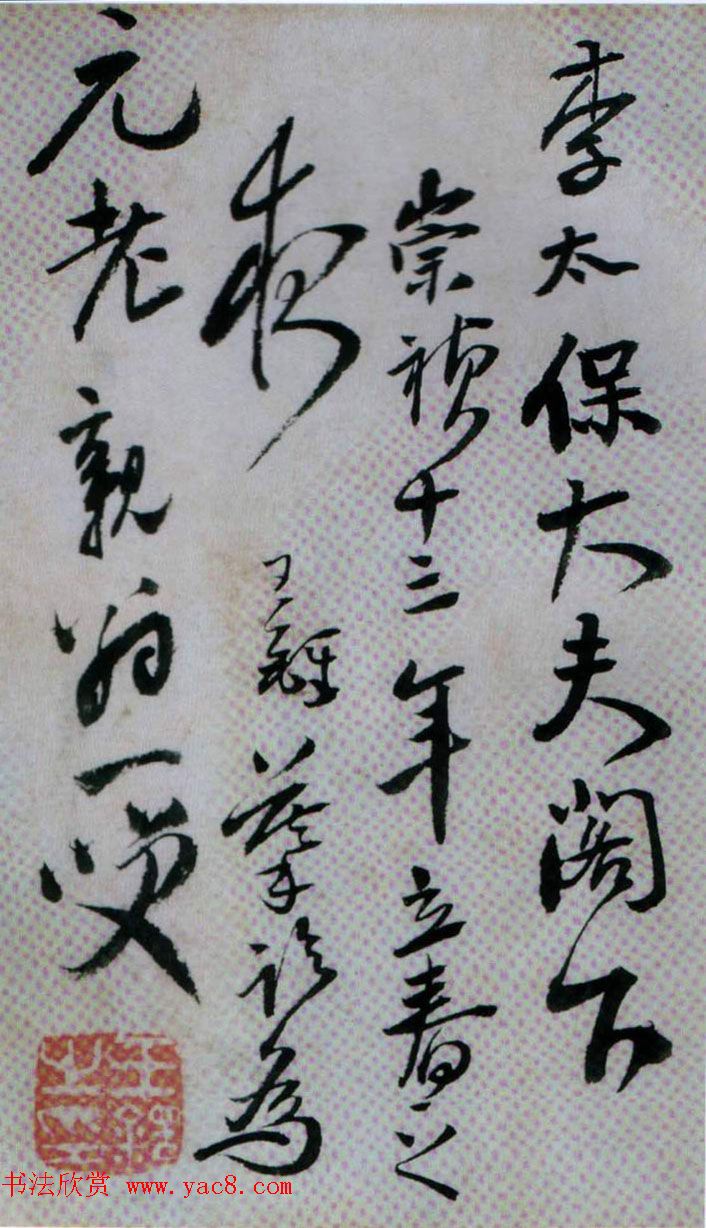 李太保大夫閣下
崇禎十三年立春之
夜
王鐸摹為
元老親翁一
王鐸之
书法欣赏 www.yac8.com